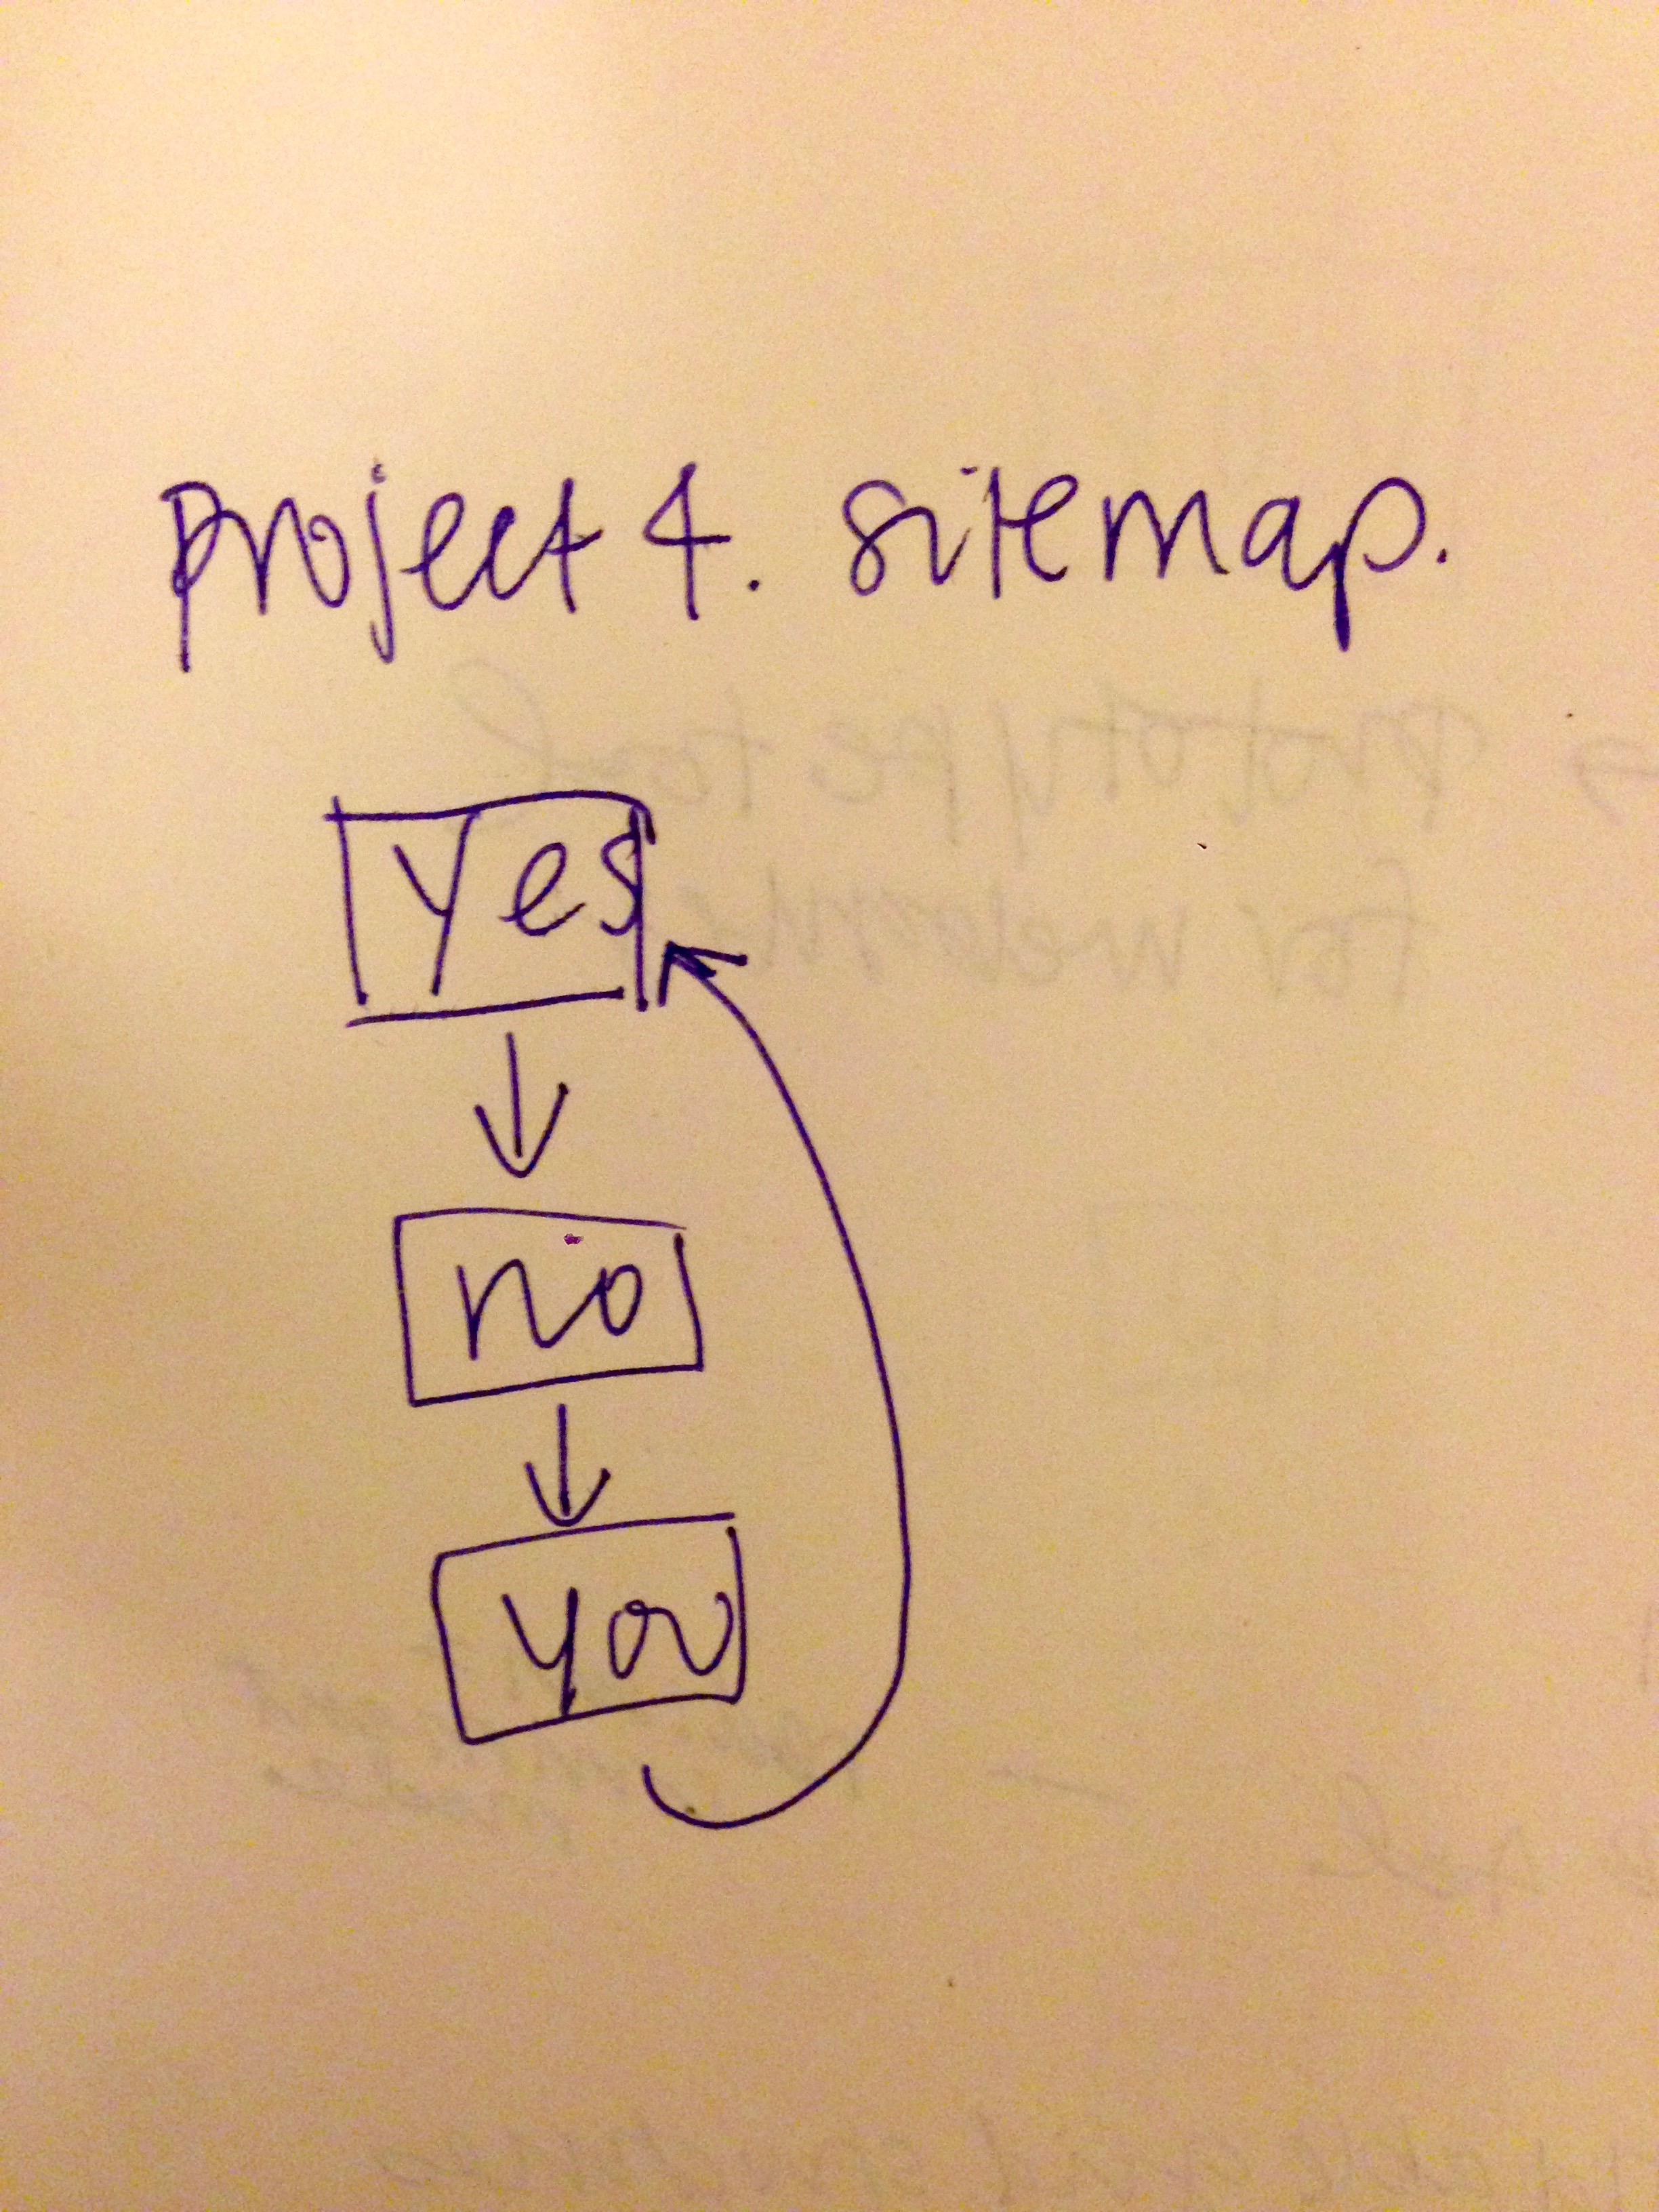 project 4. sitemap.
yes
no
you